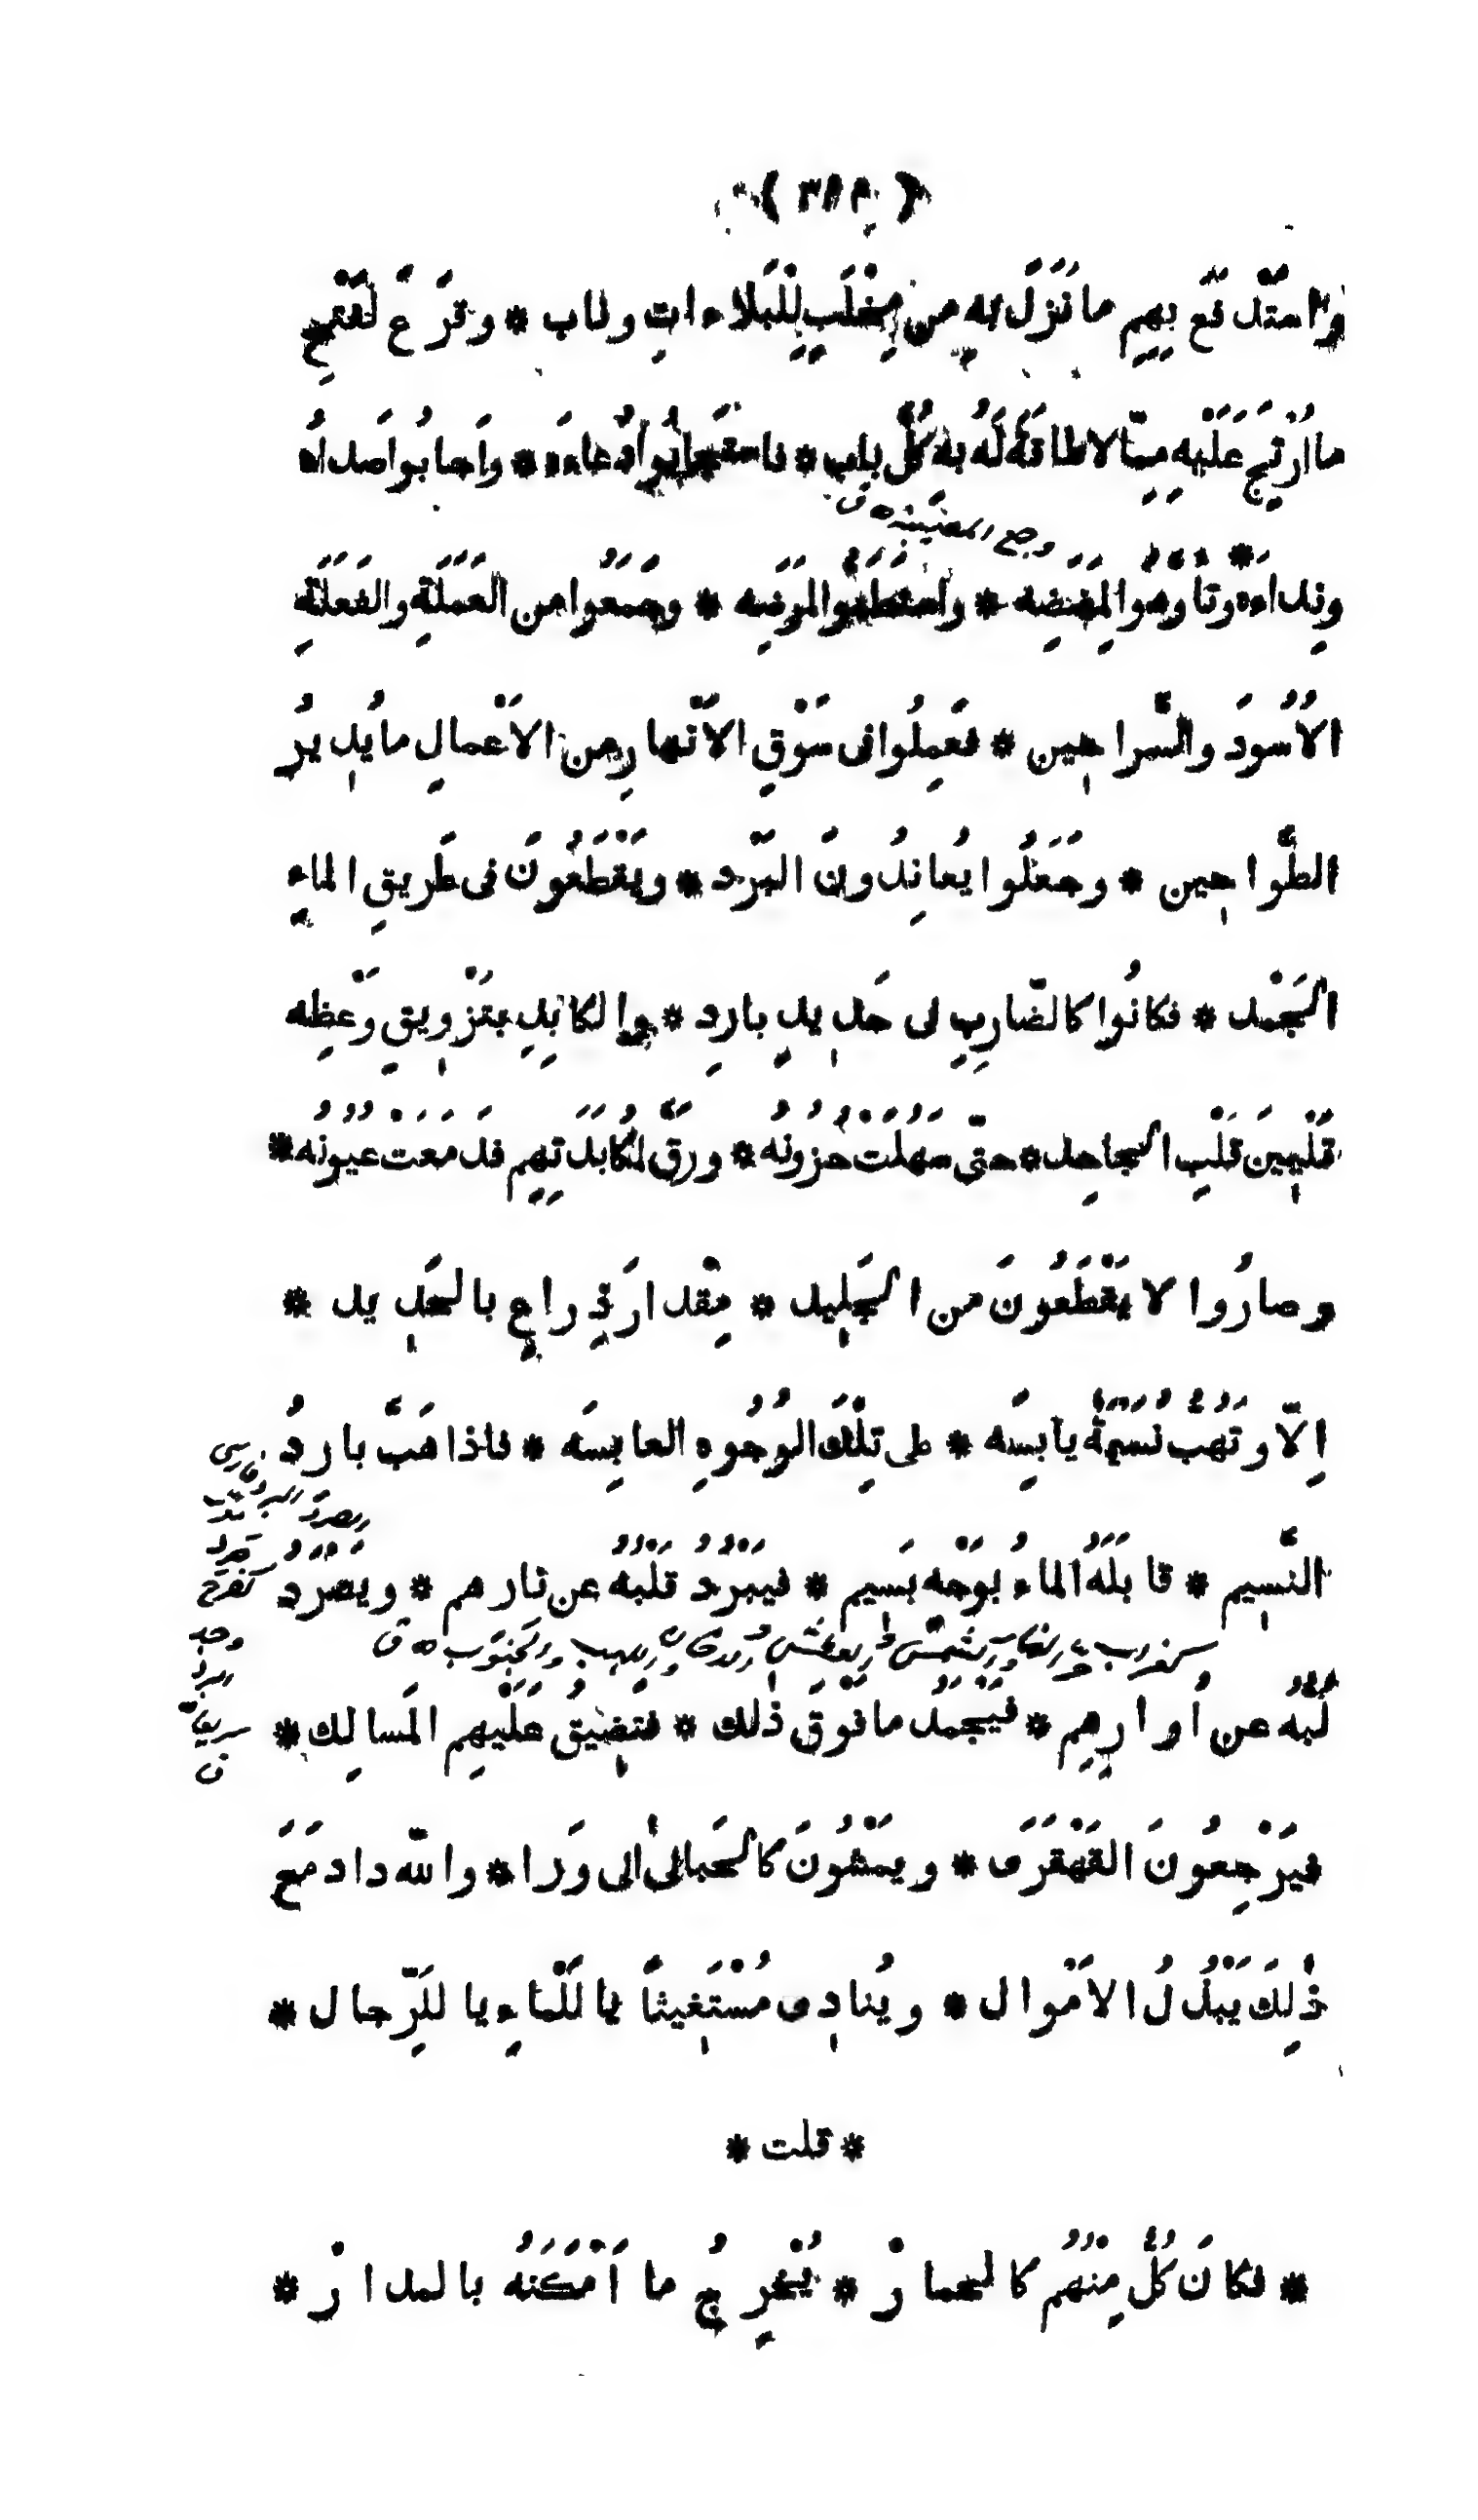 واستدفع بهم ما نزل به من مخلب للبلاءات وناب * وقرع لفتح
ما ارتج عليه مما لا طاقة له به كل باب * فاستجابوا دعاءه * واجابوا صداه
ونداءه وتاوهوا لمضضه * واستطبوا لمرضه * وجمعوا من العملة والفعلة
الاسود والسراحين * فعملوا فى سوق الانهار من الاعمال ما يدير
الطواحين * وجعلوا يعاندون البرد * ويقطعون فى طريق الماء
الجمد * فكانوا كالضارب فى حديد بارد * والكابد بتزويق وعظه
تليين قلب الجاحد * حتى سهلت حزونه * ورق لمكابدتهم فدمعت عيونه *
وصاروا لا يقطعون من الجليد * مقدار ذراع بالحديد *
الا وتهب نسمة يابسه * على تلك الوجوه العابسه * فاذا هب بارد
النسيم * قابله الماء بوجه بسيم * فيبرد قلبه عن نارهم * ويصرد
لبه عن اوارهم * فيجمد ما فوق ذلك * فتضيق عليهم المسالك *
فيرجعون القهقرى * ويمشون كالحبالى الى ورا * والله داد مع
ذلك يبذل الاموال * وينادى مستغيثا يا للماء يا للرجال *
* قلت *
* فكان كل منهم كالحمار * يخرج ما امكنه بالمدار *